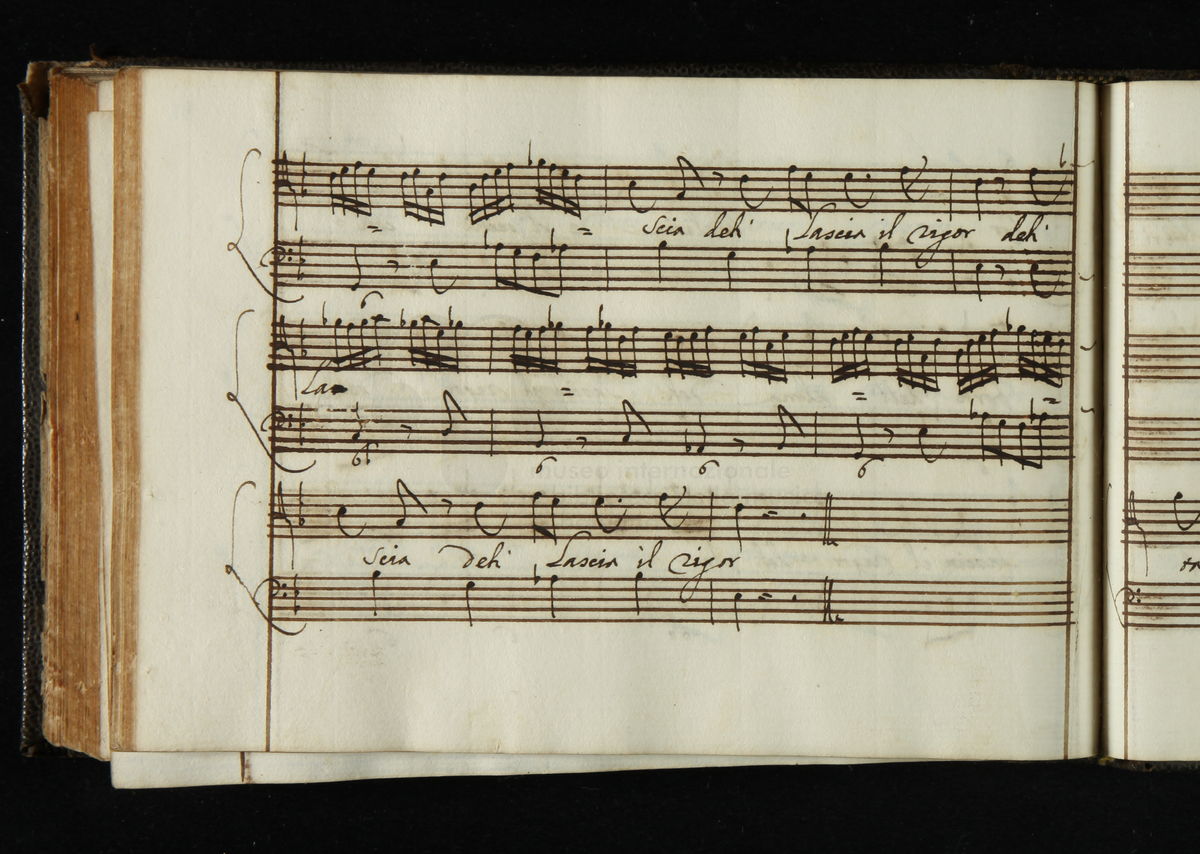 = = scia deh Lascia il rigor deh
La = = =
6 6 6 6
museo internazionale
scia deh Lascia il rigor